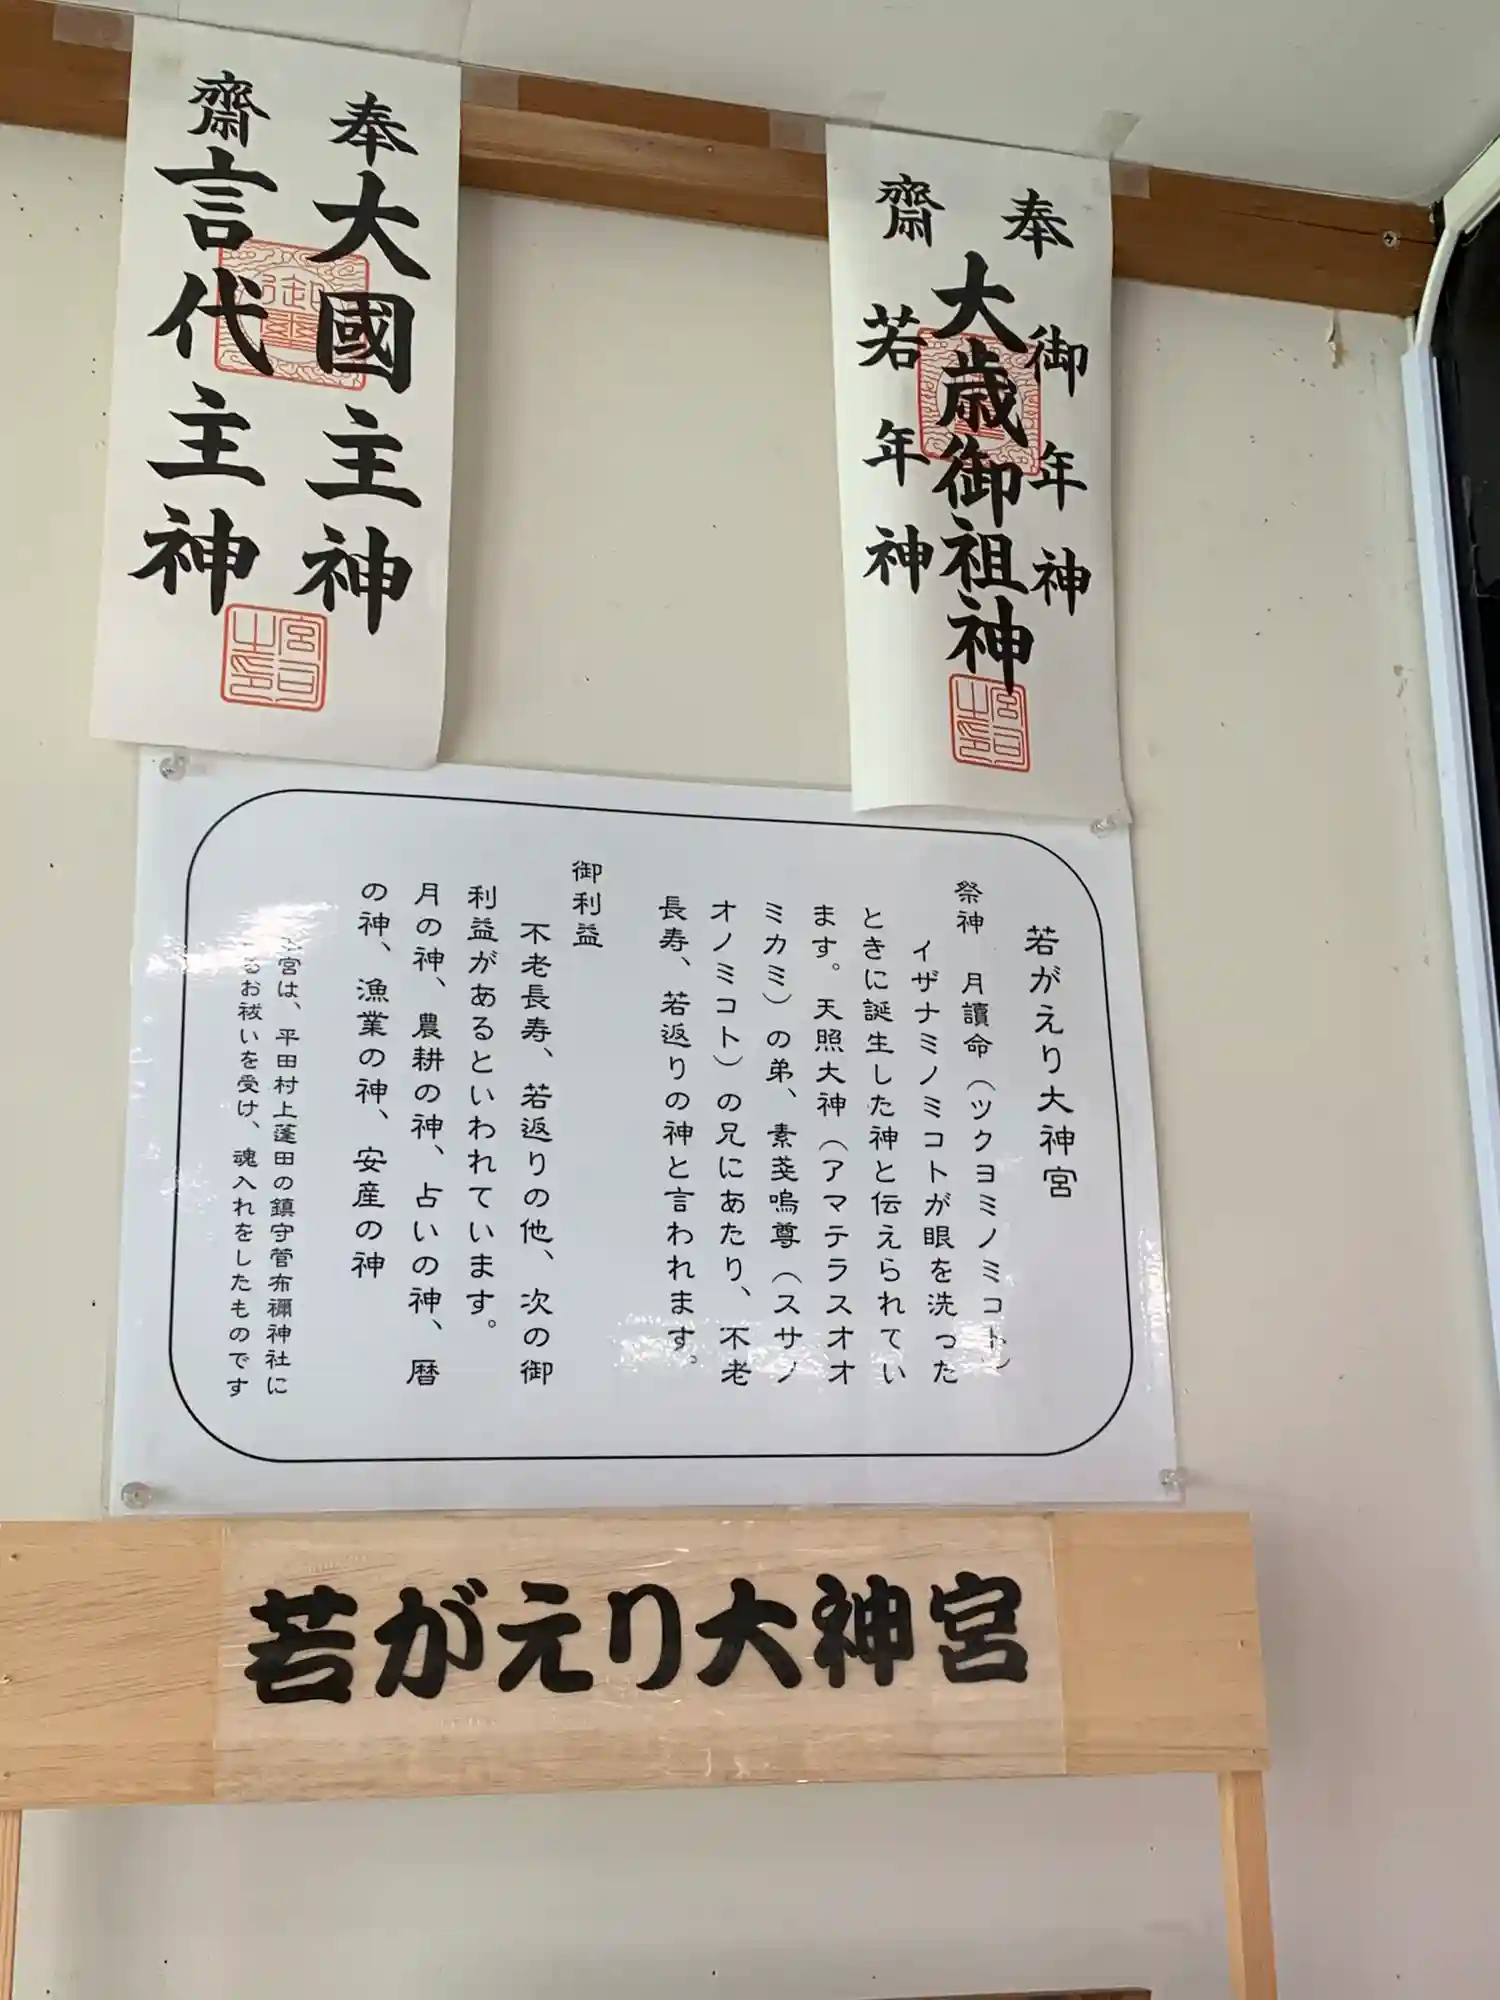 奉 大國主神
齋 言代主神
奉 御年神
大歳御祖神
齋 若年神
若がえり大神宮
祭神 月讀命（ツクヨミノミコト）
イザナミノミコトが眼を洗った
ときに誕生した神と伝えられてい
ます。天照大神（アマテラスオオ
ミカミ）の弟、素戔嗚尊（スサノ
オノミコト）の兄にあたり、不老
長寿、若返りの神と言われます。
御利益
不老長寿、若返りの他、次の御
利益があるといわれています。
月の神、農耕の神、占いの神、暦
の神、漁業の神、安産の神
宮は、平田村上蓬田の鎮守菅布禰神社に
るお祓いを受け、魂入れをしたものです
若がえり大神宮